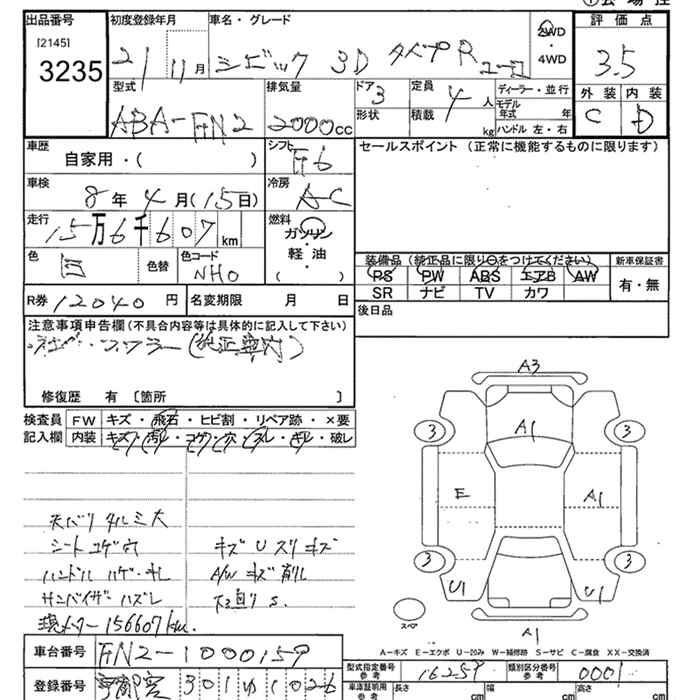 出品番号
[2145]
3235
初度登録年月
21 11月
車名・グレード
シビック 3D タイプR ユーロ
2WD
・4WD
評価点
3.5
外装 内装
C D
型式
ABA-FN2
排気量
2000cc
ドア 3
形状
定員 4人
積載 kg
ディーラー・並行
モデル年式 年
ハンドル 左・右
車歴
自家用・( )
シフト F6
セールスポイント (正常に機能するものに限ります)
車検
8年4月(15日)
冷房 AC
走行
15万6千607km
燃料
ガソリン
軽・油
( )
色 白
色替
色コード NH0
装備品 (純正品に限り○をつけてください)
PS PW ABS エアB AW
SR ナビ TV カワ
新車保証書
有・無
R券 12040円
名変期限 月 日
後日品
注意事項申告欄(不具合内容等は具体的に記入して下さい)
修復歴 有 〔箇所 〕
検査員記入欄
FW キズ・飛石・ヒビ割・リペア跡・×要
内装 キズ・汚れ・コゲ・穴・スレ・キレ・破レ
天バリ タルミ大
シート コゲ穴
ハンドル ハゲ・キレ
サンバイザー ハズレ
現メーター 156607km
キズ U スリキズ
A/W キズ 削れ
下廻り S.
A3
3 A1 3
E A1
3 3
U1 U1
スペア
A1
A-キズ E-エクボ U-凹み W-補修跡 S-サビ C-腐食 XX-交換済
車台番号 FN2-1000159
型式指定番号 参考 16259
類別区分番号 参考 0001
登録番号 宇都宮 301 ゆ 1026
車庫証明用 参考 長さ cm 幅 cm 高さ cm